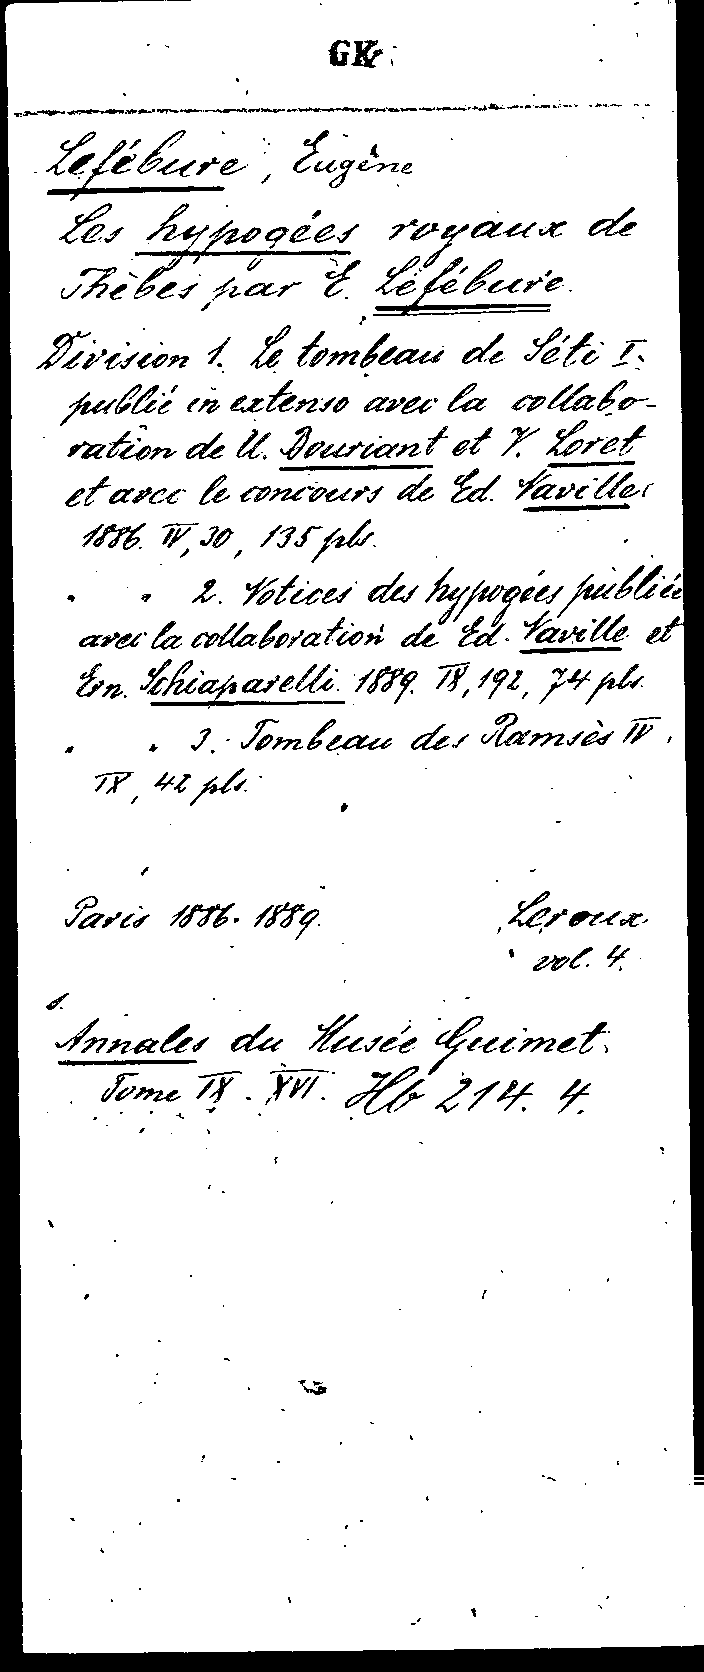 GK
Lefébure, Eugène
Les hypogées royaux de
Thèbes par E. Lefébure.
Division 1. Le tombeau de Séti I.
publié in extenso avec la collabo-
ration de U. Bouriant et V. Loret
et avec le concours de Ed. Naville
1886. IV, 30, 135 pls.
" " 2. Notices des hypogées publiée
avec la collaboration de Ed. Naville et
Ern. Schiaparelli. 1889. IX, 192, 74 pls.
" " 3. Tombeau des Ramsès IV.
IX, 42 pls.
Paris 1886-1889. Leroux
vol. 4.
s.
Annales du Musée Guimet.
Tome IX. XVI. Hb 214. 4.